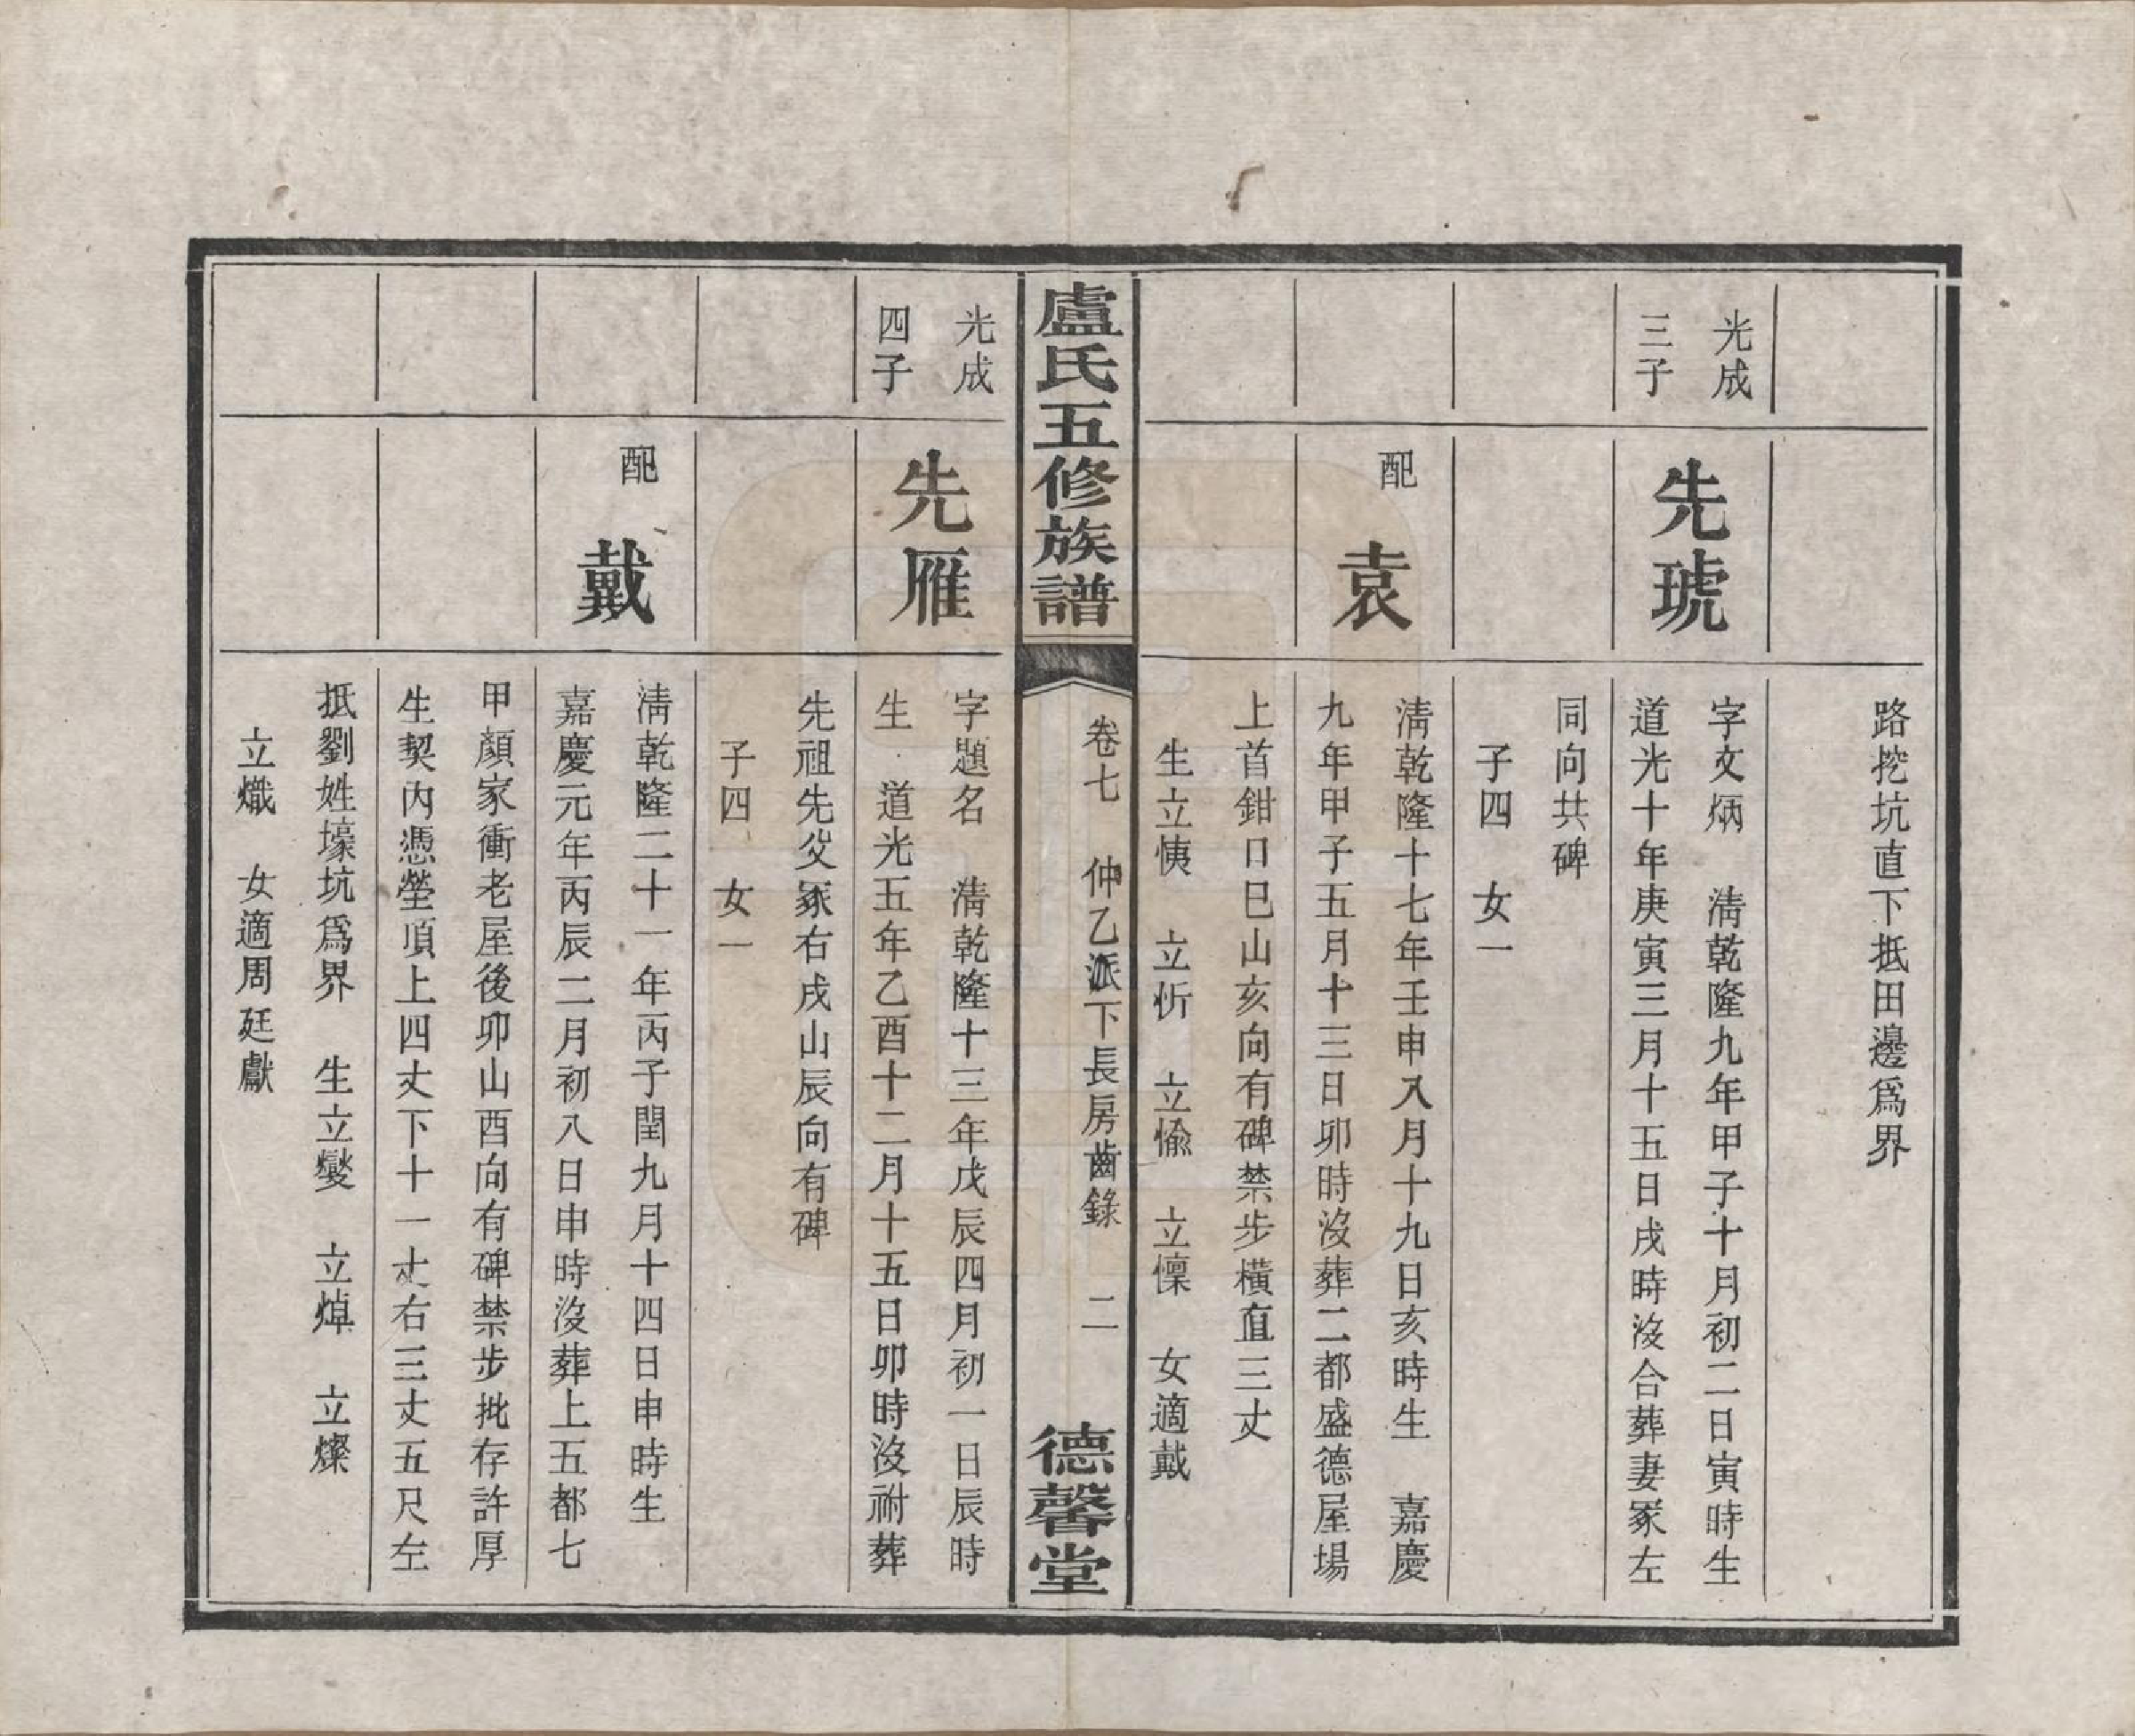 路挖坑直下抵田邊爲界
光成
三子
先琥
字文炳　清乾隆九年甲子十月初二日寅時生
道光十年庚寅三月十五日戌時沒合葬妻冢左
同向共碑
子四　女一
配
袁
清乾隆十七年壬申八月十九日亥時生　嘉慶
九年甲子五月十三日卯時沒葬二都盛德屋場
上首鉗口巳山亥向有碑禁步橫直三丈
生立恞　立忻　立愉　立懍　女適戴
盧氏五修族譜
卷七　仲乙派下長房齒錄　二
德馨堂
光成
四子
先雁
字題名　清乾隆十三年戊辰四月初一日辰時
生　道光五年乙酉十二月十五日卯時沒祔葬
先祖先父冢右戌山辰向有碑
子四　女一
配
戴
清乾隆二十一年丙子閏九月十四日申時生
嘉慶元年丙辰二月初八日申時沒葬上五都七
甲顏家衝老屋後卯山酉向有碑禁步批存許厚
生契內憑塋頂上四丈下十一丈右三丈五尺左
抵劉姓壕坑爲界　生立燮　立焯　立燦
立熾　女適周廷獻